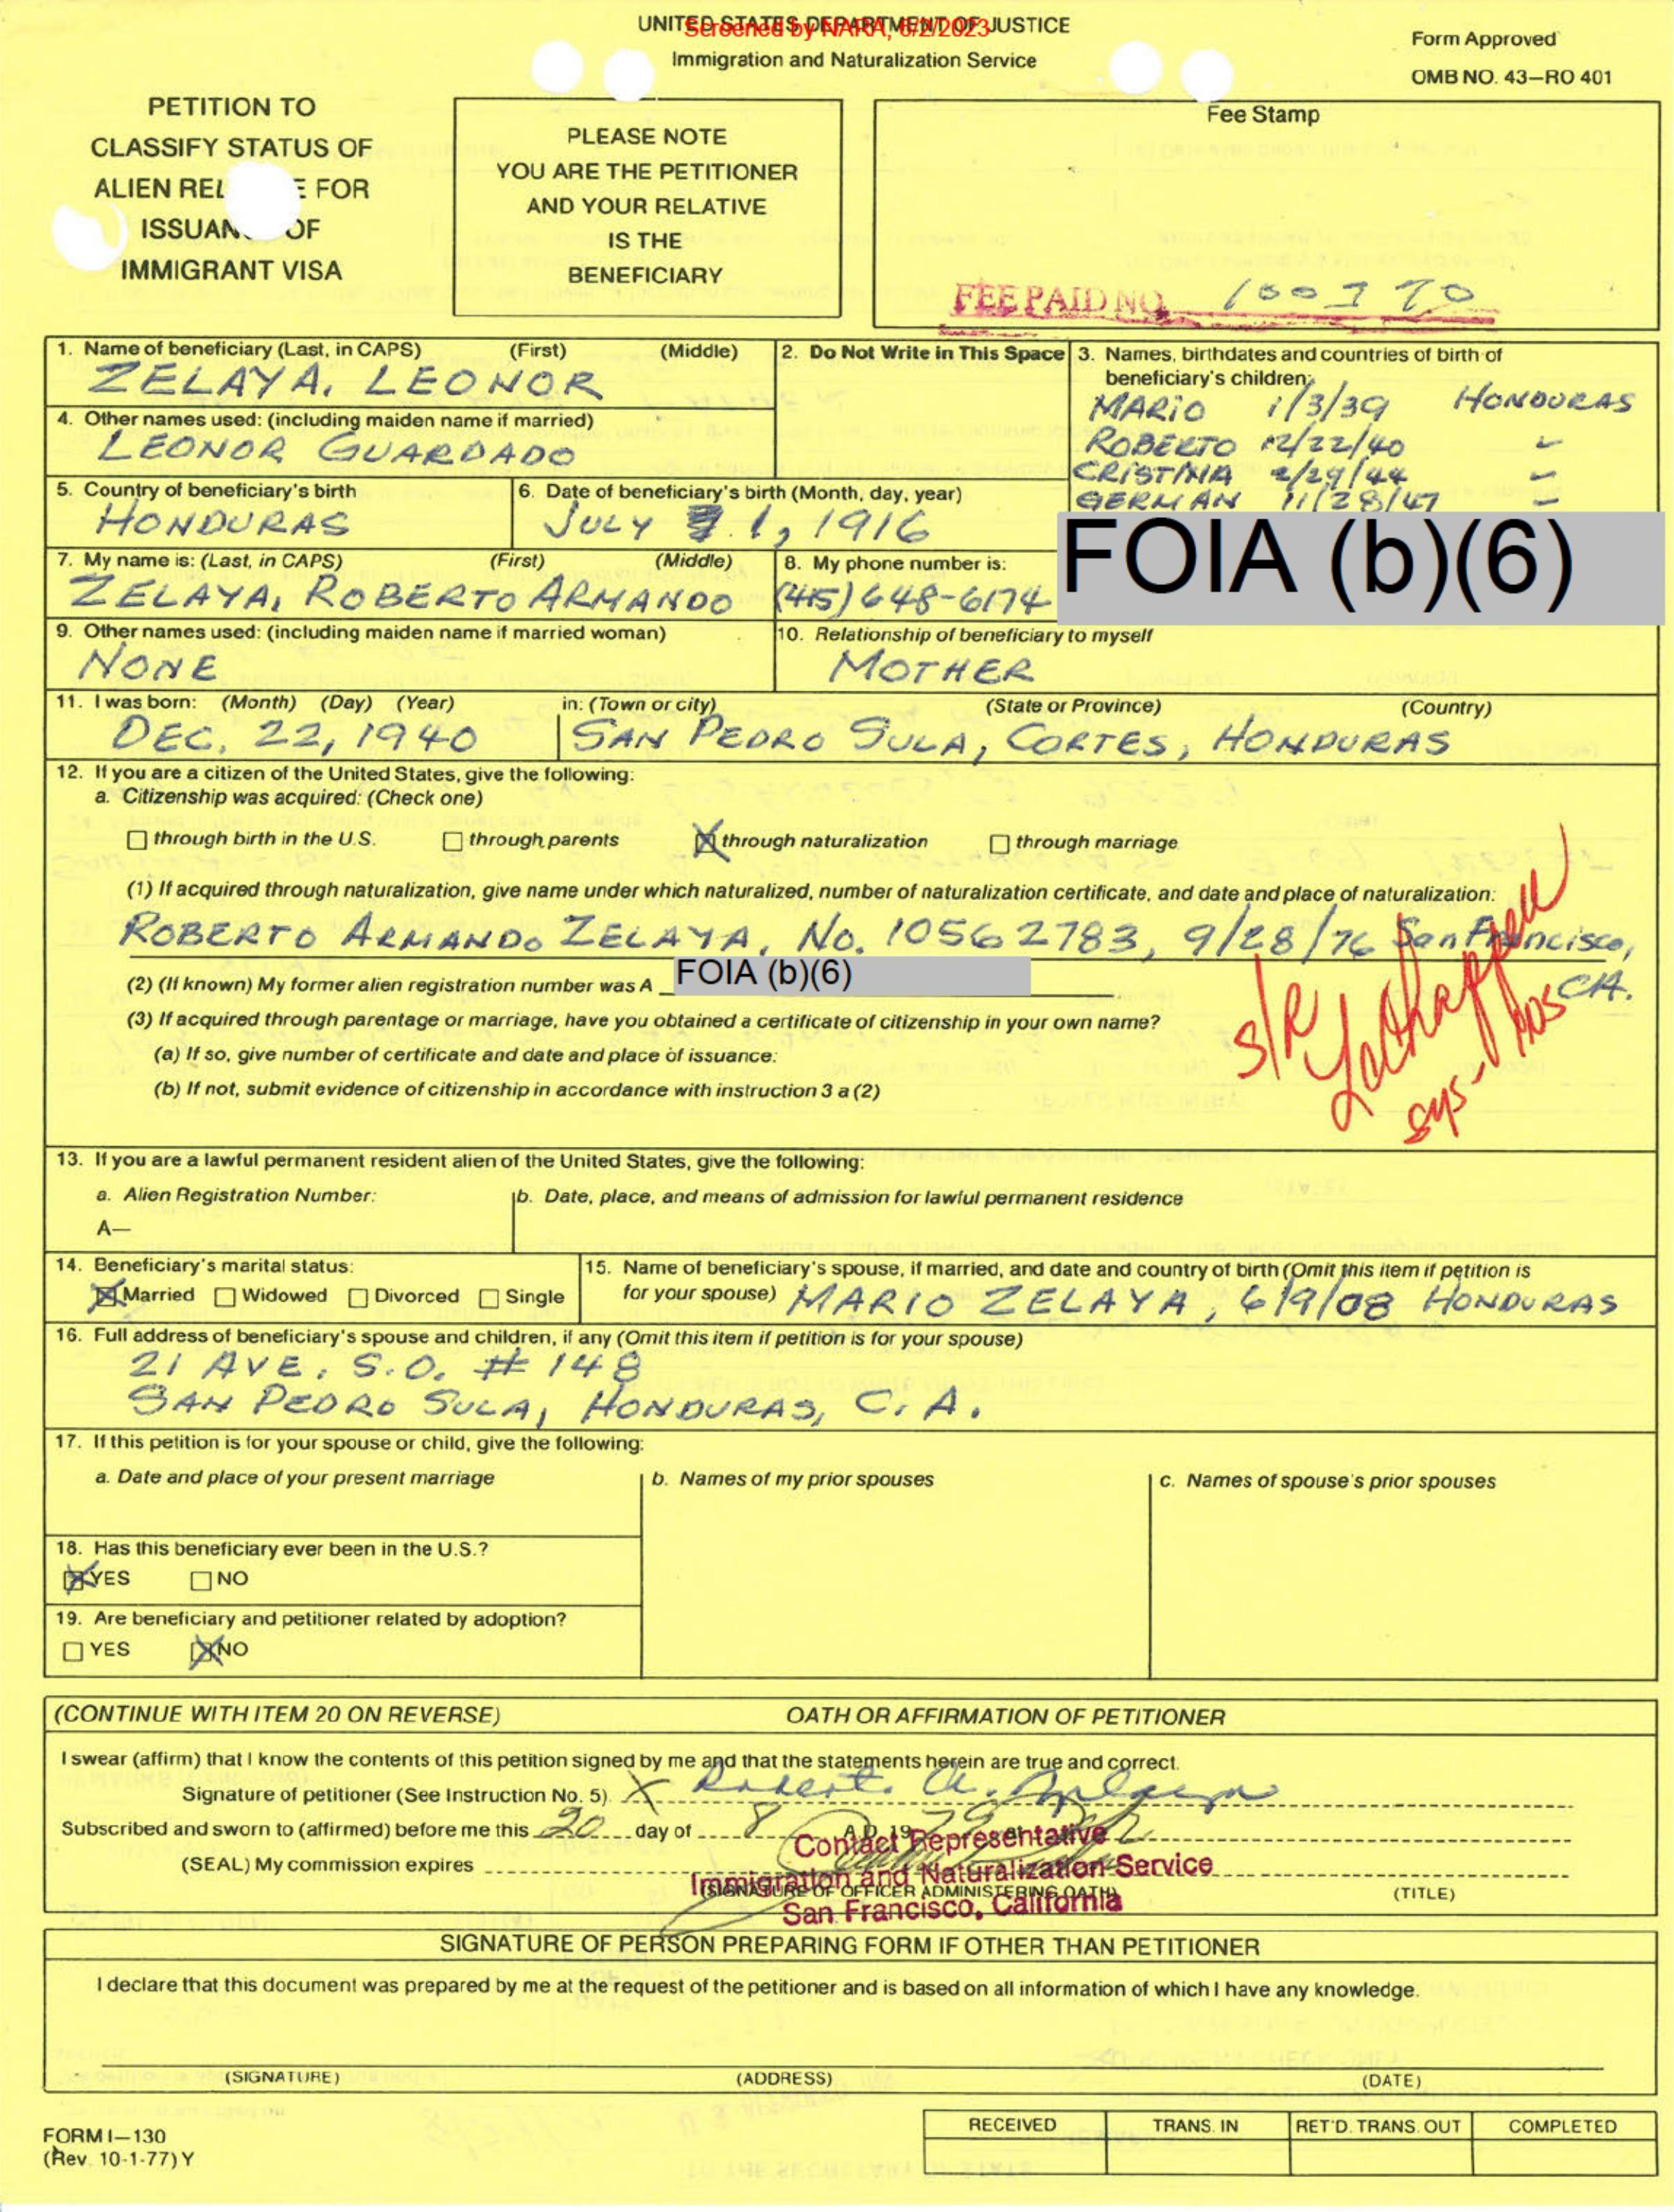 UNITED STATES DEPARTMENT OF JUSTICE
Screened by NARA, 8/2/2023
Immigration and Naturalization Service
Form Approved
OMB NO. 43—RO 401
PETITION TO
CLASSIFY STATUS OF
ALIEN REL E FOR
ISSUAN OF
IMMIGRANT VISA
PLEASE NOTE
YOU ARE THE PETITIONER
AND YOUR RELATIVE
IS THE
BENEFICIARY
Fee Stamp
FEE PAID NO.
1. Name of beneficiary (Last, in CAPS) (First) (Middle)
ZELAYA, LEONOR
2. Do Not Write in This Space
3. Names, birthdates and countries of birth of
beneficiary's children:
MARIO 1/3/39 HONDURAS
ROBERTO 12/22/40 "
CRISTINA 2/29/44 "
GERMAN 11/28/47 "
FOIA (b)(6)
4. Other names used: (including maiden name if married)
LEONOR GUARDADO
5. Country of beneficiary's birth
HONDURAS
6. Date of beneficiary's birth (Month, day, year)
JULY 1, 1916
7. My name is: (Last, in CAPS) (First) (Middle)
ZELAYA, ROBERTO ARMANDO
8. My phone number is:
(415) 648-6174
9. Other names used: (including maiden name if married woman)
NONE
10. Relationship of beneficiary to myself
MOTHER
11. I was born: (Month) (Day) (Year) in: (Town or city) (State or Province) (Country)
DEC. 22, 1940 SAN PEDRO SULA, CORTES, HONDURAS
12. If you are a citizen of the United States, give the following:
a. Citizenship was acquired: (Check one)
through birth in the U.S. through parents through naturalization through marriage
(1) If acquired through naturalization, give name under which naturalized, number of naturalization certificate, and date and place of naturalization:
ROBERTO ARMANDO ZELAYA, No. 10562783, 9/28/76 San Francisco,
CA.
(2) (If known) My former alien registration number was A FOIA (b)(6)
(3) If acquired through parentage or marriage, have you obtained a certificate of citizenship in your own name?
(a) If so, give number of certificate and date and place of issuance:
(b) If not, submit evidence of citizenship in accordance with instruction 3 a (2)
S/R
13. If you are a lawful permanent resident alien of the United States, give the following:
a. Alien Registration Number:
A—
b. Date, place, and means of admission for lawful permanent residence
14. Beneficiary's marital status:
Married Widowed Divorced Single
15. Name of beneficiary's spouse, if married, and date and country of birth (Omit this item if petition is
for your spouse) MARIO ZELAYA, 6/9/08 HONDURAS
16. Full address of beneficiary's spouse and children, if any (Omit this item if petition is for your spouse)
21 AVE. S.O. # 148
SAN PEDRO SULA, HONDURAS, C.A.
17. If this petition is for your spouse or child, give the following:
a. Date and place of your present marriage
b. Names of my prior spouses
c. Names of spouse's prior spouses
18. Has this beneficiary ever been in the U.S.?
YES NO
19. Are beneficiary and petitioner related by adoption?
YES NO
(CONTINUE WITH ITEM 20 ON REVERSE) OATH OR AFFIRMATION OF PETITIONER
I swear (affirm) that I know the contents of this petition signed by me and that the statements herein are true and correct.
Signature of petitioner (See Instruction No. 5) X
Subscribed and sworn to (affirmed) before me this 20 day of 8 A.D. 19 79 at
Contact Representative
(SEAL) My commission expires
Immigration and Naturalization Service
(SIGNATURE OF OFFICER ADMINISTERING OATH) (TITLE)
San Francisco, California
SIGNATURE OF PERSON PREPARING FORM IF OTHER THAN PETITIONER
I declare that this document was prepared by me at the request of the petitioner and is based on all information of which I have any knowledge.
(SIGNATURE) (ADDRESS) (DATE)
FORM I—130
(Rev. 10-1-77) Y
RECEIVED TRANS. IN RET'D. TRANS. OUT COMPLETED